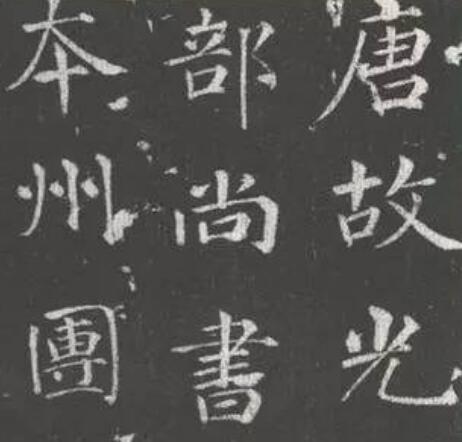 唐故光
部尚書
本州團